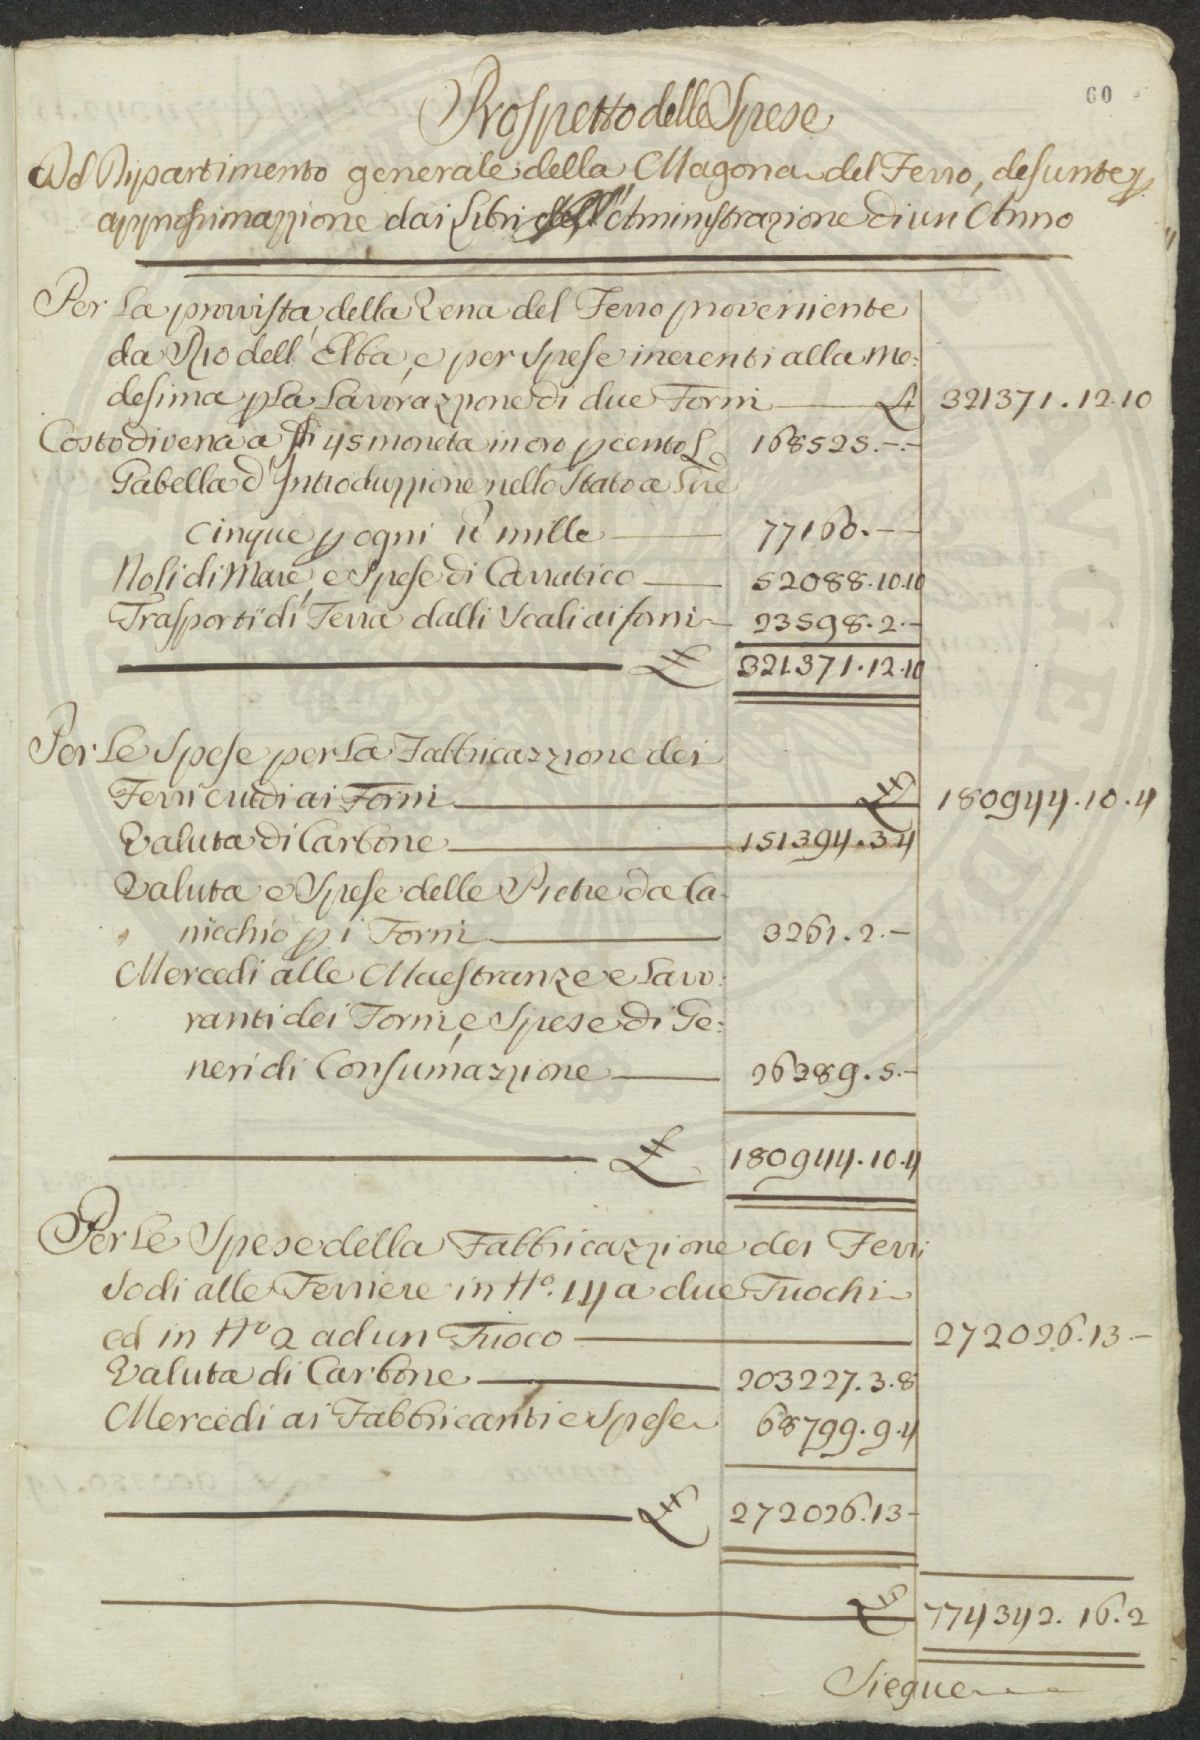 60
Prospetto delle Spese
Al Dipartimento generale della Magona del Ferro, desunte p
approssimazzione dai Libri dell'Aministrazione di un Anno
Per La provvista della Vena del Ferro proveniente
da Rio dell' Elba, e per Spese inerenti alla me:
desima p La Lavorazzione di due Forni £ 321371.12.10
Costo di vena a 45 moneta in oro p cento £ 168525.-.-
Gabella d'Introduzzione nello Stato a Lire
cinque p ogni mille 77160.-.-
Noli di Mare, e Spese di Carratico 52088.10.10
Trasporti di Terra dalli Scali ai forni 23598.2.-
£ 321371.12.10
Per Le Spese per La Fabbricazzione dei
Ferri crudi ai Forni £ 180944.10.4
Valuta di Carbone 151394.3.4
Valuta e Spese delle Pietre da Ca-
nicchio p i Forni 3261.2.-
Mercedi alle Maestranze e Lavo:
ranti dei Forni, e Spese di Ge:
neri di Consumazzione 26289.5.-
£ 180944.10.4
Per Le Spese della Fabbricazzione dei Ferri
sodi alle Ferriere in N.o 14 a due Fuochi
ed in N.o 2 ad un Fuoco 272026.13.-
Valuta di Carbone 203227.3.8
Mercedi ai Fabbricanti e Spese 68799.9.4
£ 272026.13.-
£ 774342.16.2
Siegue